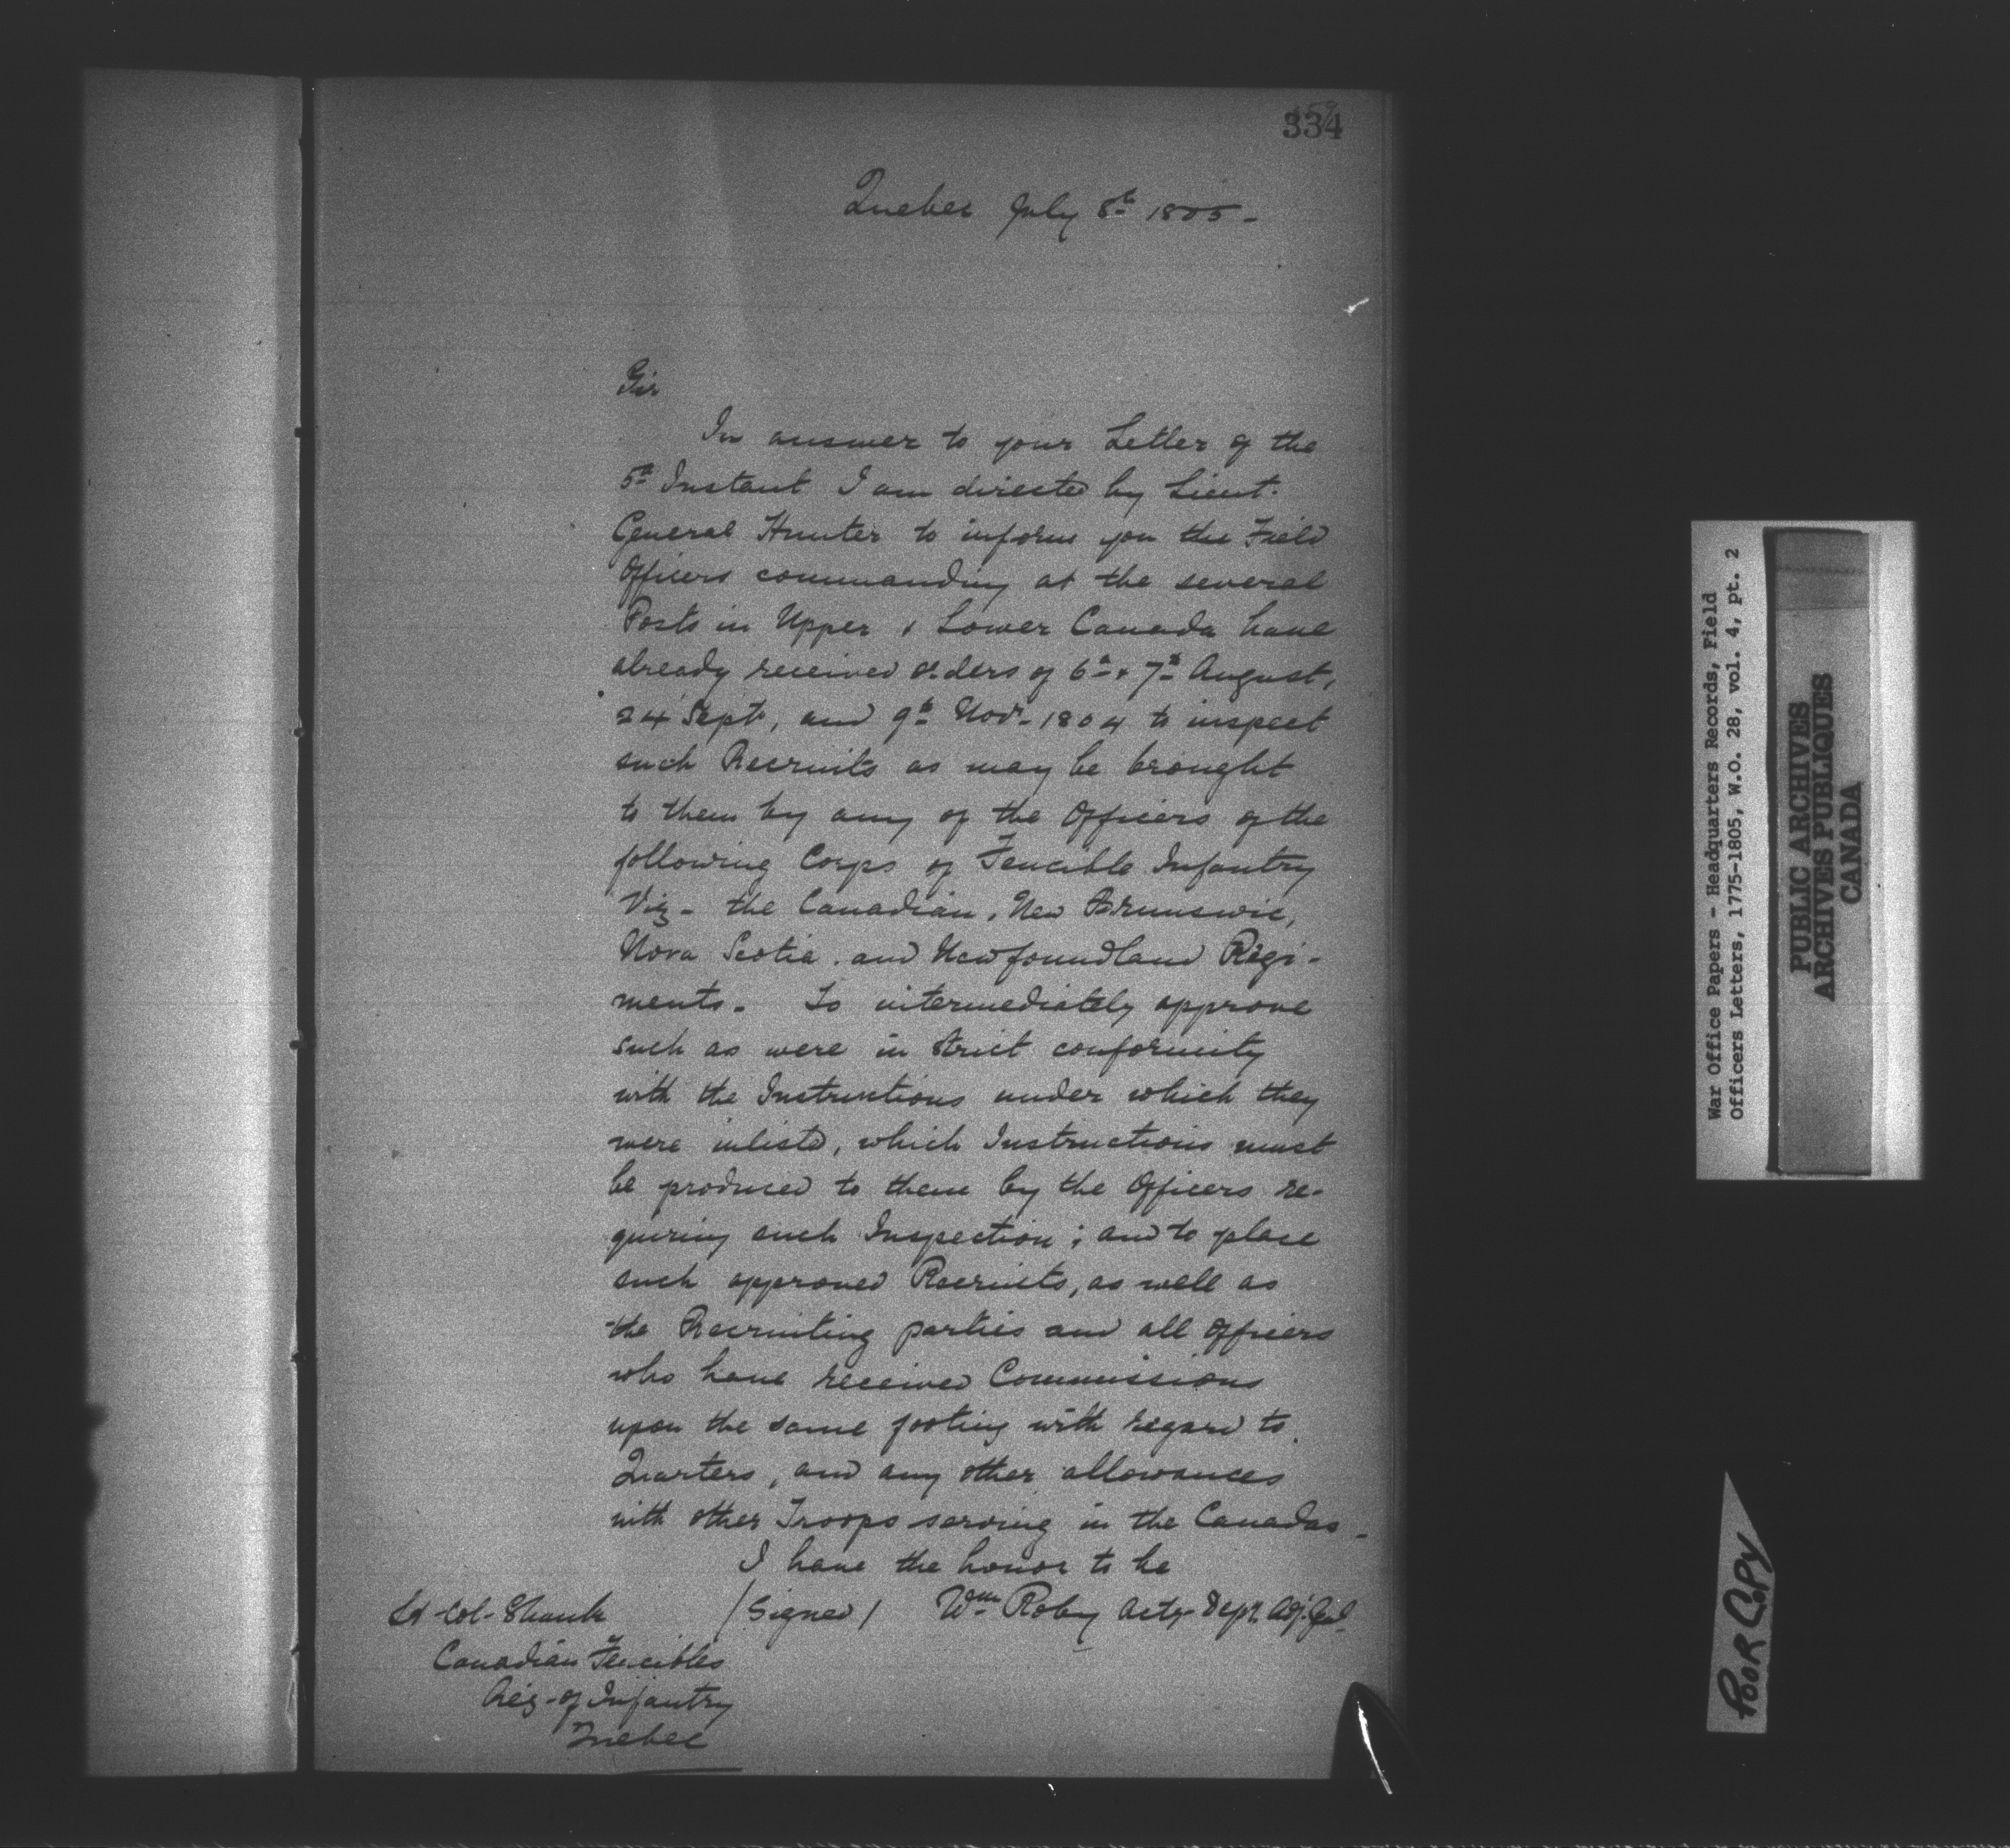 334
Quebec July 8th 1805 -
Sir
In answer to your Letter of the
5th Instant I am directed by Lieut.
General Hunter to inform you the Field
Officers commanding at the several
Posts in Upper & Lower Canada have
already received orders of 6th & 7th August,
24 Sept, and 9th Novr - 1804 to inspect
such Recruits as may be brought
to them by any of the Officers of the
following Corps of Fencible Infantry
Viz - the Canadian, New Brunswic,
Nova Scotia, and Newfoundland Regi-
ments. To intermediately approve
such as were in strict conformity
with the Instructions under which they
were inlisted, which Instructions must
be produced to them by the Officers re-
quiring such Inspection; and to place
such approved Recruits, as well as
the Recruiting parties and all Officers
who have received Commissions
upon the same footing with regard to
Quarters, and any other allowances
with other Troops serving in the Canadas -
I have the honor to be
/Signed/ Wm Roby Actg Depy. Adj. Genl.
Lt Col - Shank
Canadian Fencibles
Reg - of Infantry
Quebec
War Office Papers - Headquarters Records, Field
Officers Letters, 1775-1805, W.O. 28, vol. 4, pt. 2
PUBLIC ARCHIVES
ARCHIVES PUBLIQUES
CANADA
POOR COPY